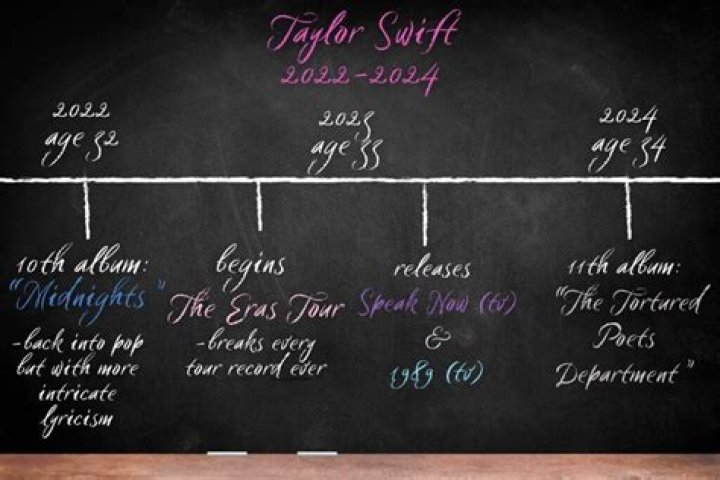 Taylor Swift
2022-2024
2022
age 32
2023
age 33
2024
age 34
10th album:
"Midnights"
-back into pop
but with more
intricate
lyricism
begins
The Eras Tour
-breaks every
tour record ever
releases
Speak Now (tv)
&
1989 (tv)
11th album:
"The Tortured
Poets
Department"